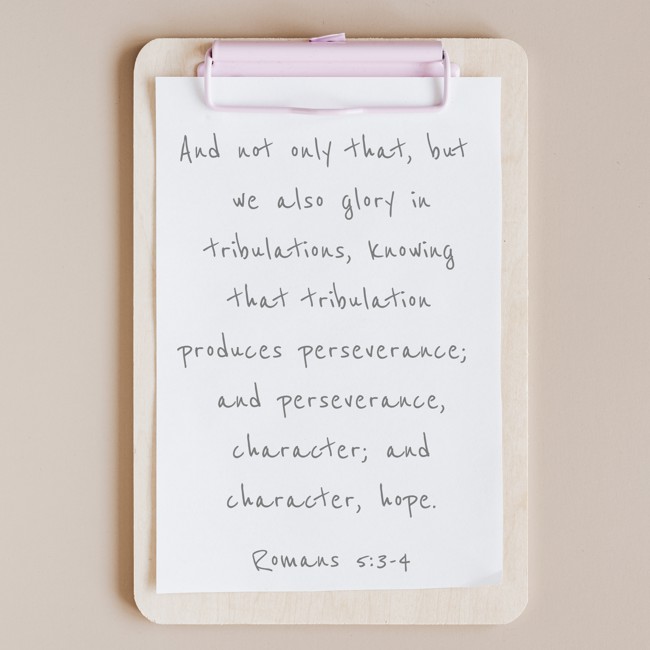 And not only that, but
we also glory in
tribulations, knowing
that tribulation
produces perseverance;
and perseverance,
character; and
character, hope.
Romans 5:3-4